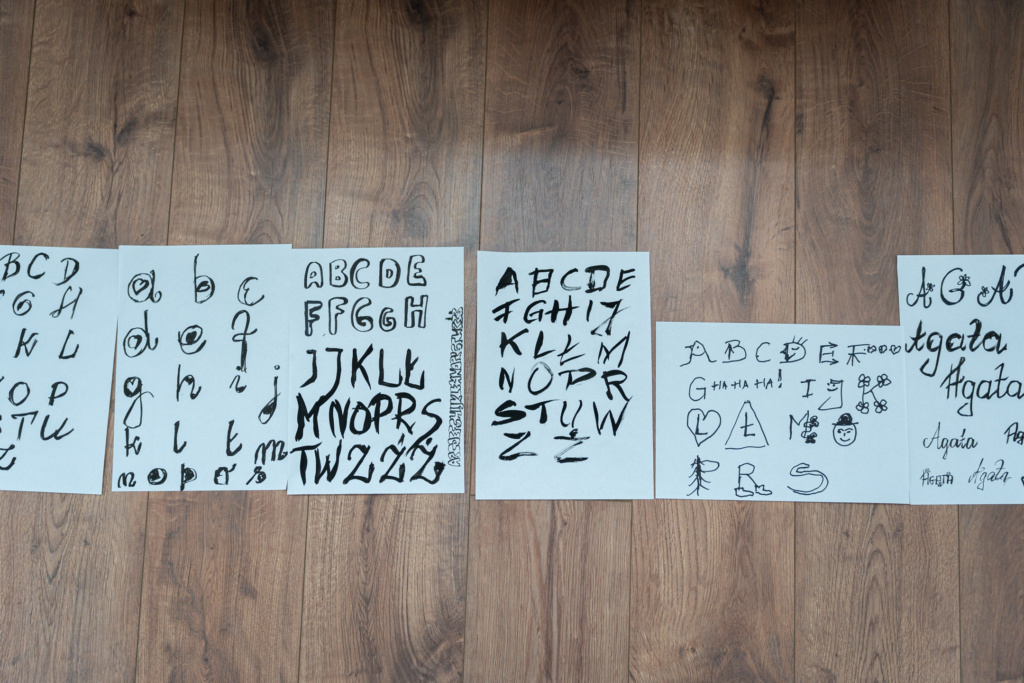 B C D
G H
K L
O P
T U
Z
a b c
d e f
g h i j
k l ł m
n o p r s
A B C D E
F F G G H
I J K L Ł
M N O P R S
T W Z Ź Ż
A B C D E
F G H I J
K L Ł M
N O P R
S T U W
Z Ż
A B C D E F
G HA HA HA! I J K
L Ł M
P R S
A G A
Agata
Agata
Agata
Agata Agata